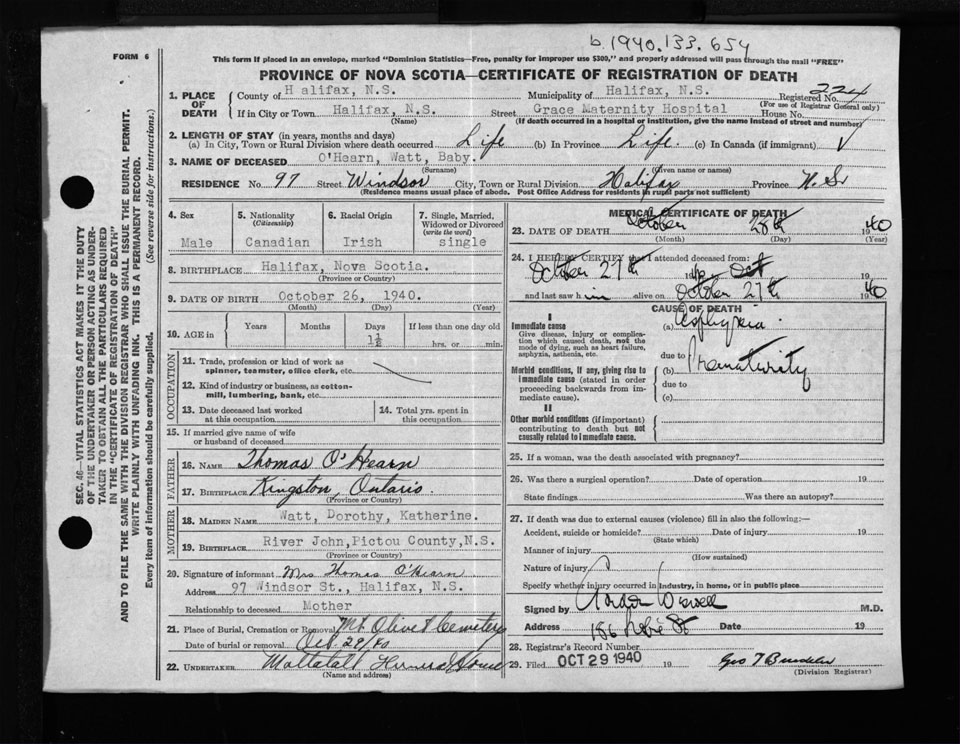 b.1940.133.654
FORM 6
This form if placed in an envelope, marked "Dominion Statistics—Free, penalty for improper use $300," and properly addressed will pass through the mail "FREE"
PROVINCE OF NOVA SCOTIA—CERTIFICATE OF REGISTRATION OF DEATH
1. PLACE OF DEATH
County of Halifax, N.S. Municipality of Halifax, N.S. Registered No. 224
(For use of Registrar General only)
If in City or Town Halifax, N.S. Street Grace Maternity Hospital House No.
(Name) (If death occurred in a hospital or institution, give the name instead of street and number)
2. LENGTH OF STAY (in years, months and days)
(a) In City, Town or Rural Division where death occurred Life (b) In Province Life. (c) In Canada (if immigrant)
3. NAME OF DECEASED O'Hearn, Watt, Baby.
(Surname) (Given name or names)
RESIDENCE No. 97 Street Windsor City, Town or Rural Division Halifax Province N.S.
(Residence means usual place of abode. Post Office Address for residents in rural parts not sufficient)
4. Sex Male
5. Nationality (Citizenship) Canadian
6. Racial Origin Irish
7. Single, Married, Widowed or Divorced (write the word) single
8. BIRTHPLACE Halifax, Nova Scotia.
(Province or Country)
9. DATE OF BIRTH October 26, 1940.
(Month) (Day) (Year)
10. AGE in Years Months Days If less than one day old
1½ hrs. or min.
OCCUPATION
11. Trade, profession or kind of work as spinner, teamster, office clerk, etc.
12. Kind of industry or business, as cotton-mill, lumbering, bank, etc.
13. Date deceased last worked at this occupation
14. Total yrs. spent in this occupation
15. If married give name of wife or husband of deceased
FATHER
16. NAME Thomas O'Hearn
17. BIRTHPLACE Kingston, Ontario.
(Province or Country)
MOTHER
18. MAIDEN NAME Watt, Dorothy, Katherine.
19. BIRTHPLACE River John, Pictou County, N.S.
(Province or Country)
20. Signature of informant Mrs Thomas O'Hearn
Address 97 Windsor St., Halifax, N.S.
Relationship to deceased Mother
21. Place of Burial, Cremation or Removal Mt. Olivet Cemetery
Date of burial or removal Oct 29/40
22. UNDERTAKER Mattatall Funeral Home
(Name and address)
MEDICAL CERTIFICATE OF DEATH
23. DATE OF DEATH October 28th 1940
(Month) (Day) (Year)
24. I HEREBY CERTIFY that I attended deceased from:
October 27th 19 40 Oct 19
and last saw h im alive on October 27th 1940
CAUSE OF DEATH
I
Immediate cause (a) Asphyxia.
Give disease, injury or complication which caused death, not the mode of dying, such as heart failure, asphyxia, asthenia, etc.
due to
Morbid conditions, if any, giving rise to immediate cause (stated in order proceeding backwards from immediate cause). (b) Prematurity
due to
(c)
II
Other morbid conditions (if important) contributing to death but not causally related to immediate cause.
25. If a woman, was the death associated with pregnancy?
26. Was there a surgical operation? Date of operation 19
State findings Was there an autopsy?
27. If death was due to external causes (violence) fill in also the following:—
Accident, suicide or homicide? Date of injury 19
(State which)
Manner of injury
(How sustained)
Nature of injury
Specify whether injury occurred in industry, in home, or in public place
Signed by Gordon Wiswell M.D.
Address 186 Robie St Date 19
28. Registrar's Record Number
29. Filed OCT 29 1940 19
(Division Registrar)
SEC. 46—VITAL STATISTICS ACT MAKES IT THE DUTY
OF THE UNDERTAKER OR PERSON ACTING AS UNDER-
TAKER TO OBTAIN ALL THE PARTICULARS REQUIRED
IN THE "CERTIFICATE OF REGISTRATION OF DEATH"
AND TO FILE THE SAME WITH THE DIVISION REGISTRAR WHO SHALL ISSUE THE BURIAL PERMIT.
WRITE PLAINLY WITH UNFADING INK. THIS IS A PERMANENT RECORD.
Every item of information should be carefully supplied. (See reverse side for instructions.)